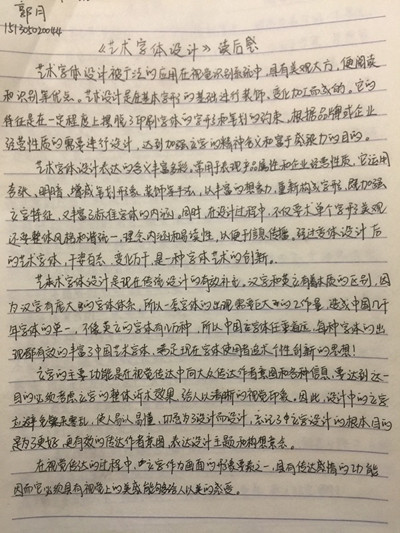 郭月
15130502004
《艺术字体设计》读后感
艺术字体设计被广泛的应用在视觉识别系统中，具有美观大方，便阅读
和识别等优点。艺术设计是在基本字形的基础进行装饰、变化加工而成的。它的
特征是在一定程度上摆脱了印刷字体的字形和笔划的约束，根据品牌或企业
经营性质的需要进行设计，达到加强文字的精神含义和富于感染力的目的。
艺术字体设计表达的含义丰富多彩。常用于表现产品属性和企业经营性质。它运用
夸张、明暗、增减笔划形象、装饰等手法，以丰富的想象力，重新构成字形，既加强
文字特征，又丰富了标准字体的内涵。同时，在设计过程中，不仅要求单个字形美观
还要整体风格和谐统一，理念内涵和易读性，以便于信息传播。经过变体设计后
的艺术字体，千姿百态，变化万千，是一种字体艺术的创新。
艺术字体设计是现在传统设计的有效补充，汉字和英文有着本质的区别，因
为汉字有庞大的字体体系，所以一套字体的出现需要巨大的工作量，造成中国几千
年字体的单一，不像英文的字体有几万种，所以中国文字体任重道远，每种字体的出
现都有效的丰富了中国艺术字体，满足现在字体使用者追求个性创新的思想！
文字的主要功能是在视觉传达中向大众传达作者意图和各种信息，要达到这一
目的必须考虑文字的整体诉求效果，给人以清晰的视觉印象。因此，设计中的文字
应避免繁杂零乱，使人易认易懂，切忌为了设计而设计，忘记了文字设计的根本目的
是为了更好，更有效的传达作者意图，表达设计主题和构想意念。
在视觉传达的过程中，文字作为画面的形象要素之一，具有传达感情的功能
因而它必须具有视觉上的美感，能够给人以美的感受。